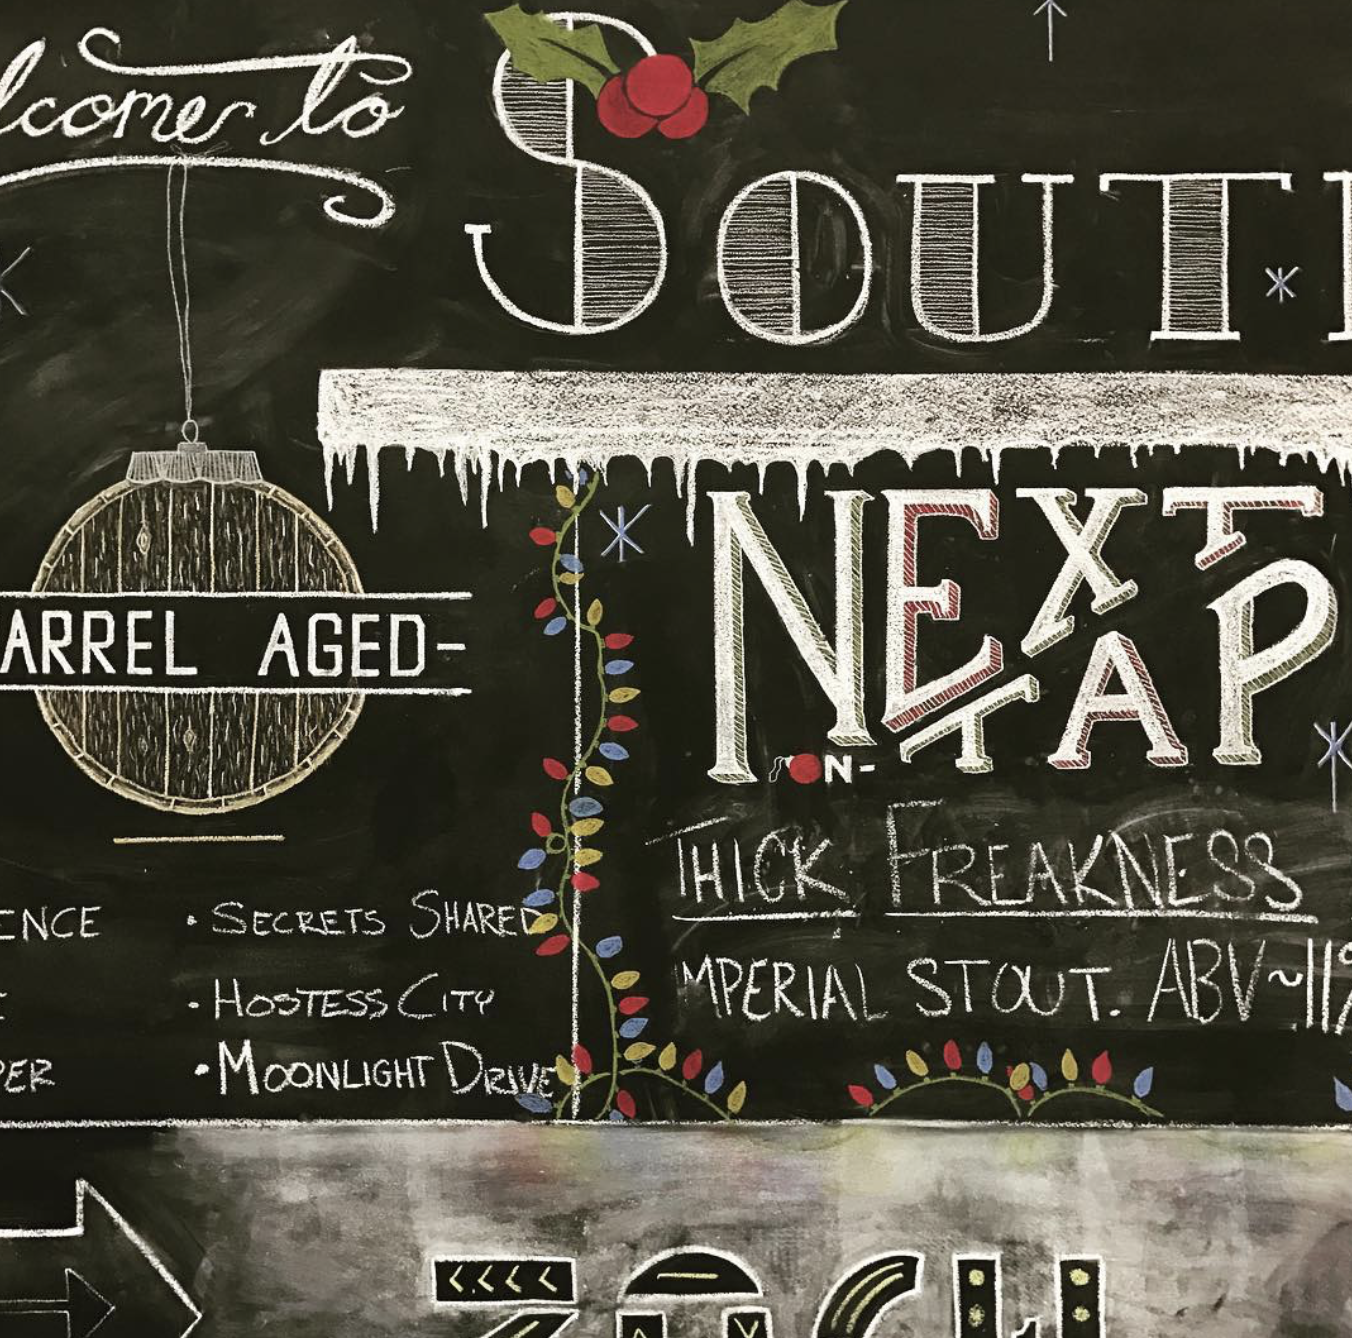 lcome to
SOUT
NEXT
ON-TAP
ARREL AGED-
THICK FREAKNESS
IMPERIAL STOUT. ABV~11%
ENCE
• SECRETS SHARED
- HOSTESS CITY
PER
• MOONLIGHT DRIVE